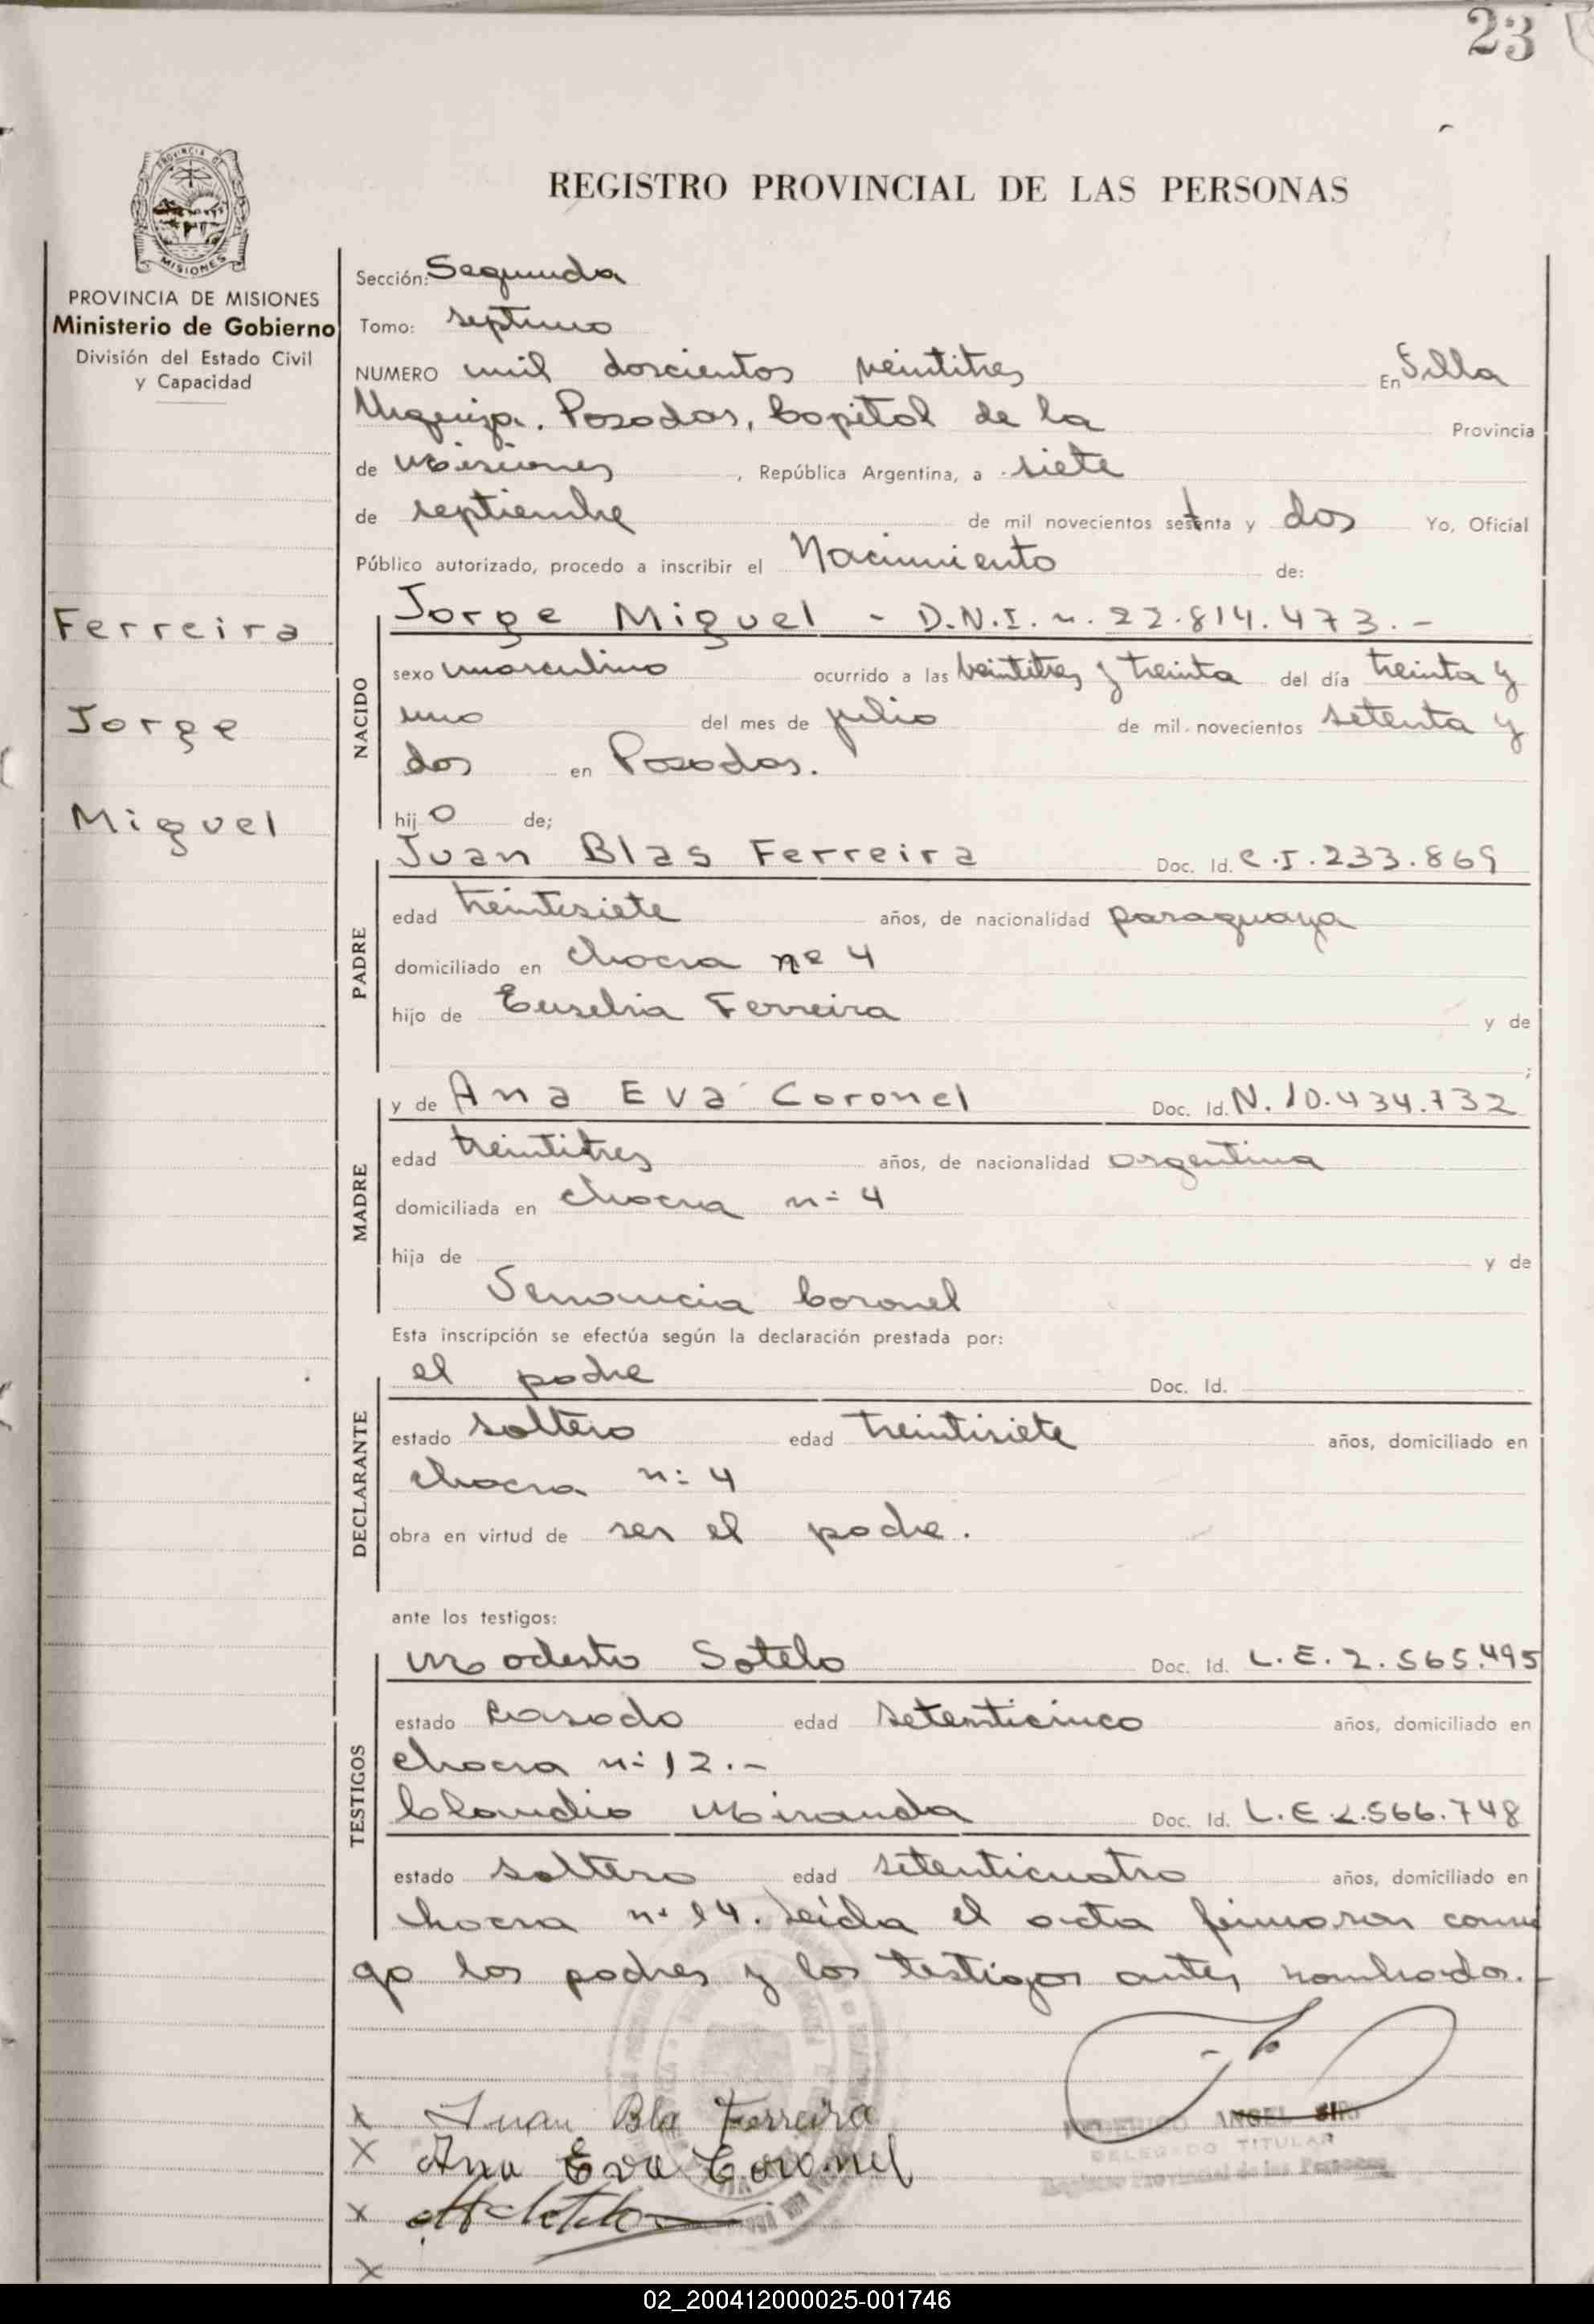 23
REGISTRO PROVINCIAL DE LAS PERSONAS
PROVINCIA DE MISIONES
Ministerio de Gobierno
División del Estado Civil
y Capacidad
Ferreira
Jorge
Miguel
Sección: Segunda
Tomo: septimo
NUMERO mil doscientos veintitres En Villa
Urquiza. Posadas, Capital de la Provincia
de Misiones, República Argentina, a siete
de septiembre de mil novecientos setenta y dos Yo, Oficial
Público autorizado, procedo a inscribir el Nacimiento de:
NACIDO
Jorge Miguel - D.N.I. n. 22.814.473.-
sexo masculino ocurrido a las veintitres y treinta del día treinta y
uno del mes de julio de mil novecientos setenta y
dos en Posadas.
hijo de;
PADRE
Juan Blas Ferreira Doc. Id. C.I. 233.869
edad treintisiete años, de nacionalidad paraguaya
domiciliado en chacra nº 4
hijo de Eusebia Ferreira y de
;
MADRE
y de Ana Eva Coronel Doc. Id. N. 10.434.732
edad treintitres años, de nacionalidad argentina
domiciliada en chacra n: 4
hija de y de
Venancia Coronel
Esta inscripción se efectúa según la declaración prestada por:
DECLARANTE
el padre Doc. Id.
estado soltero edad treintisiete años, domiciliado en
chacra n: 4
obra en virtud de ser el padre.
ante los testigos:
TESTIGOS
Modesto Sotelo Doc. Id. L.E. 2.565.495
estado casado edad setenticinco años, domiciliado en
chacra n: 12.-
Claudio Miranda Doc. Id. L.E. 2.566.748
estado soltero edad setenticuatro años, domiciliado en
chacra n: 14. Leída el acta firmaron conmi
go los padres y los testigos antes nombrados.-
x Juan Bla Ferreira
x Ana Eva Coronel
x
x
ANGEL
DELEGADO TITULAR
Registro Provincial de las Personas
02_200412000025-001746